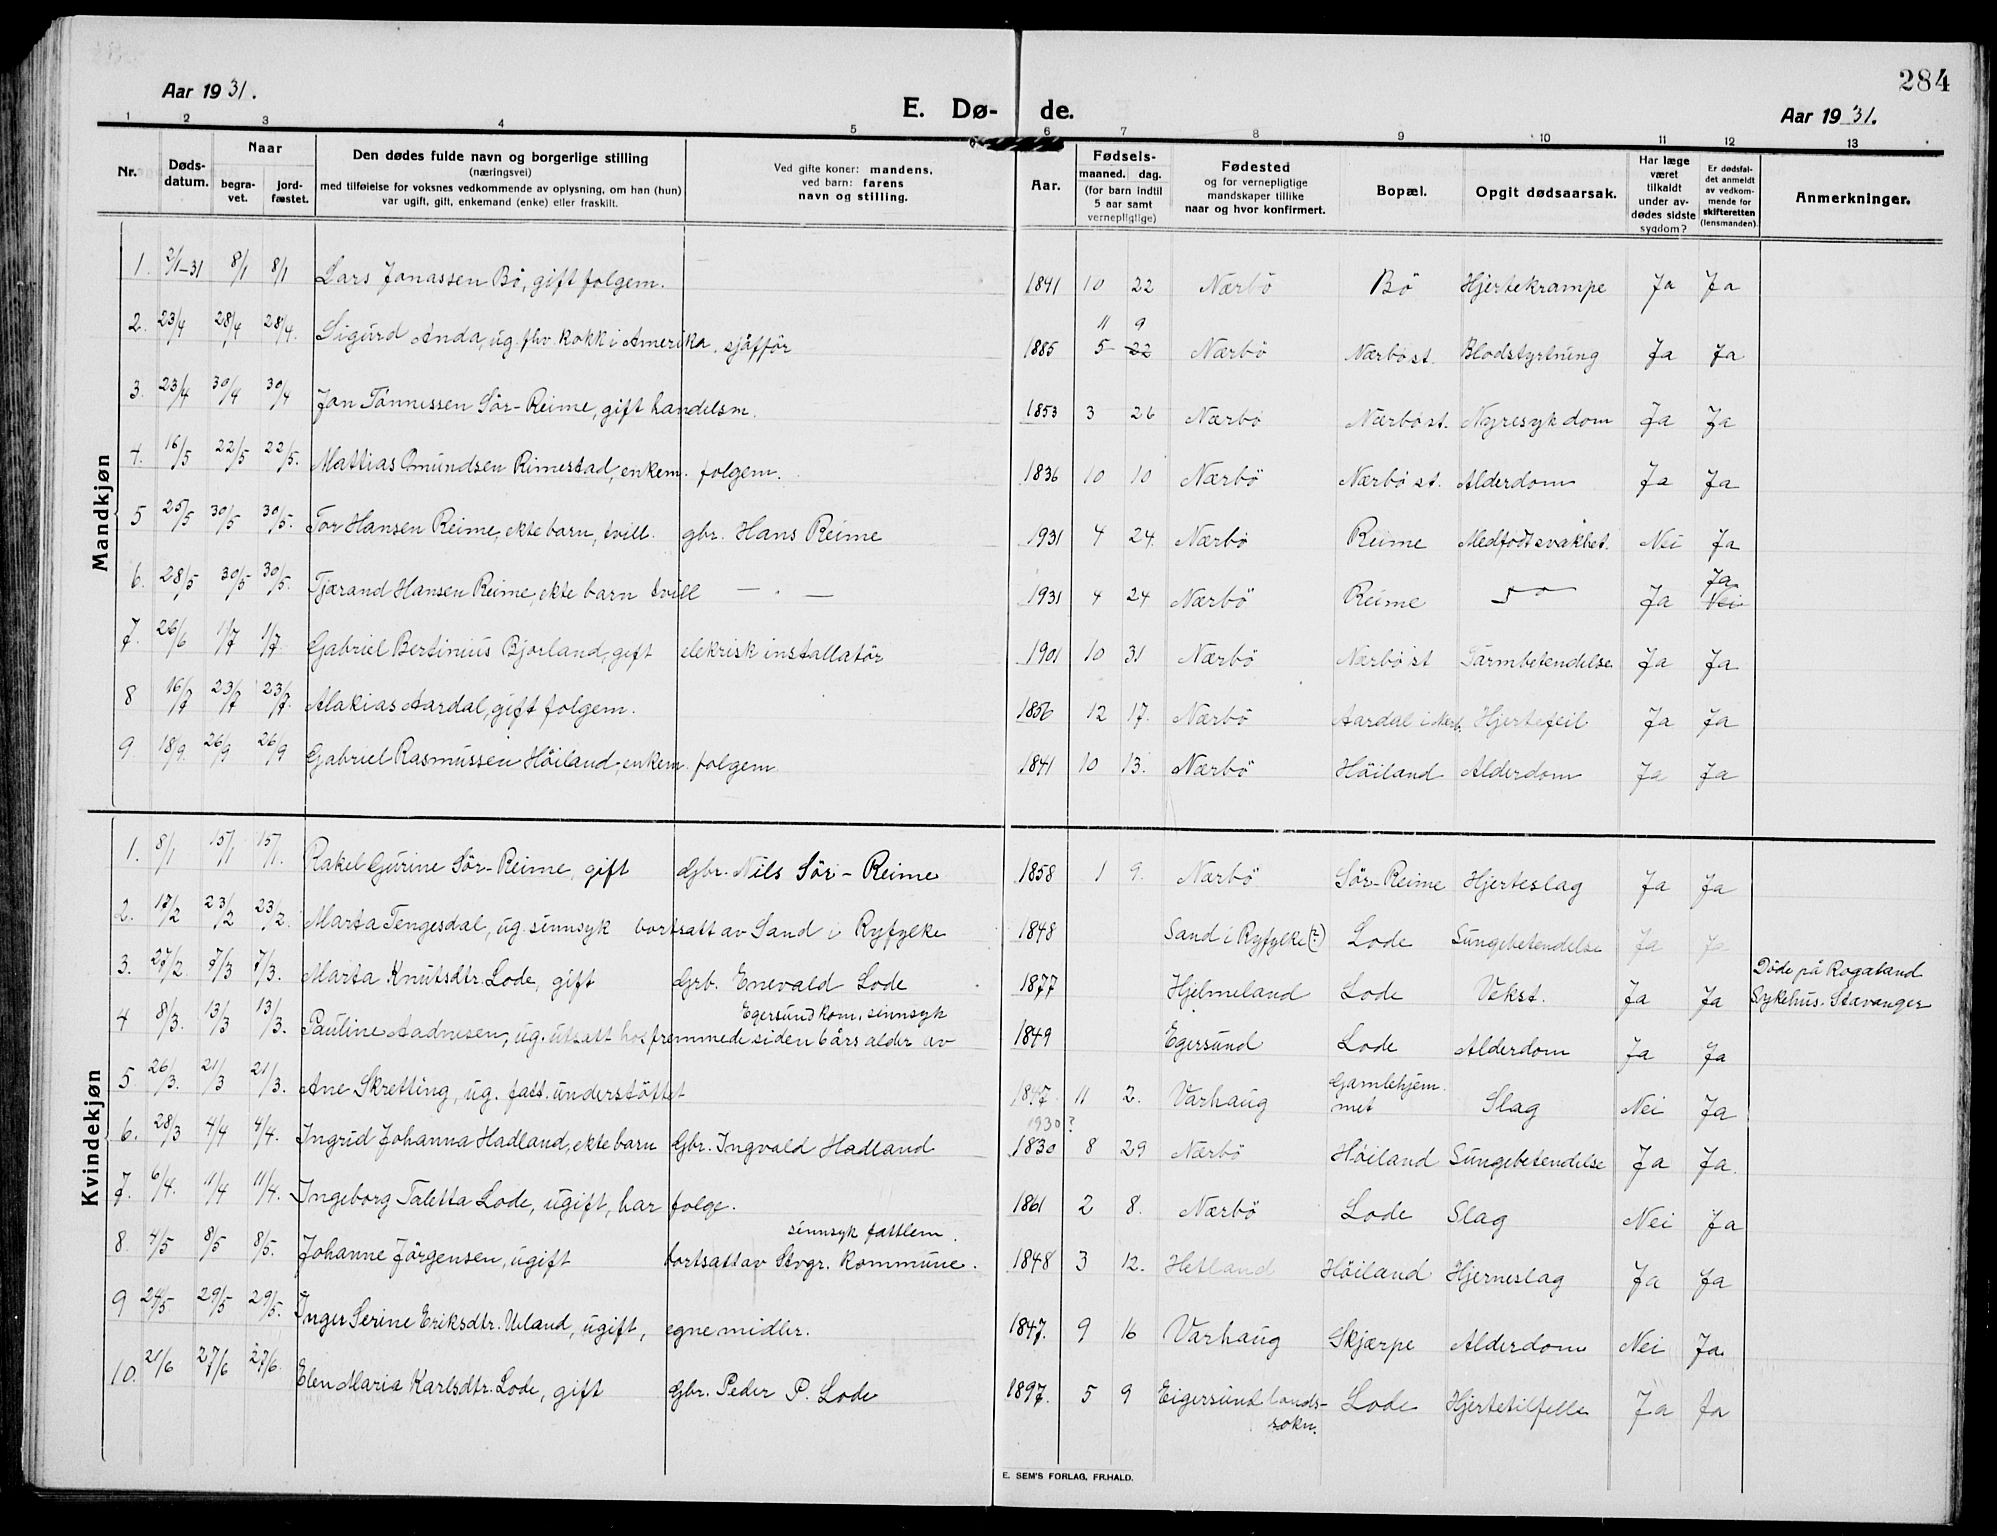 284
Aar 1931.
E. Dø- de.
Aar 1931.
1 2 3 4 5 6 7 8 9 10 11 12 13
Nr.
Døds-
datum.
Naar
begra-
vet.
jord-
fæstet.
Den dødes fulde navn og borgerlige stilling
(næringsvei)
med tilføielse for voksnes vedkommende av oplysning, om han (hun)
var ugift, gift, enkemand (enke) eller fraskilt.
Ved gifte koner: mandens,
ved barn: farens
navn og stilling.
Aar.
Fødsels-
maaned. dag.
(for barn indtil
5 aar samt
vernepligtige)
Fødested
og for vernepligtige
mandskaper tillike
naar og hvor konfirmert.
Bopæl.
Opgit dødsaarsak.
Har læge
været
tilkaldt
under av-
dødes sidste
sygdom?
Er dødsfal-
det anmeldt
av vedkom-
mende for
skifteretten
(lensmanden).
Anmerkninger.
Mandkjøn
1. 2/1-31 8/1 8/1 Lars Jonassen Bö, gift folgem. 1841 10 22 Nærbö Bö Hjertekrampe Ja Ja
11 9
2. 23/4 28/4 28/4. Sigurd Anda, ug. fhv. kokk i Amerika. sjåfför 1885 5 22 Nærbö Nærbö st. Blodstyrtning Ja Ja
3. 23/4 30/4 30/4 Jon Tönnessen Sör-Reime, gift handelsm. 1853 3 26 Nærbö Nærbö st. Nyresykdom Ja Ja
4. 16/5 22/5 22/5. Mattias Omundsen Rimestad, enkem. folgem. 1836 10 10 Nærbö Nærbö st. Alderdom Ja Ja
5 25/5 30/5 30/5. Tor Hansen Reime, ekte barn, tvill. gbr. Hans Reime 1931 4 24. Nærbö Reime Medfödt svakhet. Nei Ja
Ja
6. 28/5 30/5 30/5. Tjærand Hansen Reime, ekte barn tvill — . — 1931 4 24 Nærbö Reime Ja Nei
7. 26/6 1/7 1/7. Gabriel Bertinius Bjorland, gift elekrisk installatör 1901 10 31 Nærbö Nærbö st Tarmbetendelse Ja Ja
8 16/7 23/7 23/7. Malakias Aardal, gift folgem. 1856 12 17. Nærbö Aardal i Nærb. Hjertefeil Ja Ja
9. 18/9. 26/9 26/9 Gabriel Rasmussen Höiland, enkem. folgem. 1841 10 13. Nærbö Höiland Alderdom Ja Ja
Kvindekjøn
1. 8/1 15/1 15/1. Rakel Gurine Sör-Reime, gift Gbr. Nils Sör-Reime 1858 1 9. Nærbö Sör-Reime Hjerteslag Ja Ja
2. 17/2 23/2 23/2. Marta Tengesdal, ug. sinnsyk bortsatt av Sand i Ryfylke 1848 Sand i Ryfylke (?) Lode Lungebetendelse Ja Ja
3. 27/2 7/3 7/3. Marta Knutsdtr. Lode, gift Grb. Enevald Lode 1877 Hjelmeland Lode Vekst. Ja Ja Döde på Rogaland
Sykehus. Stavanger
Egersund kom. sinnsyk
4 8/3. 13/3 13/3. Pauline Aadnesen, ug. utsatt hos fremmede siden 6 års alder av 1849 Egersund Lode Alderdom Ja Ja
5 26/3. 21/3 21/3. Ane Skretting, ug. fatt. understöttet 1847. 11 2. Varhaug Gamlehjem-
met Slag Nei Ja
1930?
6. 28/3 4/4 4/4. Ingrid Johanna Hadland, ekte barn Gbr. Ingvald Hadland 1830 8 29 Nærbö Höiland Lungebetendelse Ja Ja.
7. 6/4. 11/4 11/4. Ingeborg Taletta Lode, ugift, har folge. 1861 2 8. Nærbö Lode Slag Nei Ja
sinnsyk fattlem.
8. 4/5 8/5 8/5. Johanne Jörgensen, ugift bortsatt av Stvgr. Kommune. 1848 3 12. Hetland Höiland Hjerneslag Ja Ja
9 24/5 29/5 29/5. Inger Serine Eriksdtr. Ueland, ugift, egne midler. 1847. 9 16 Varhaug Skjærpe Alderdom Nei Ja
10. 21/6 27/6 27/6. Elen Maria Karlsdtr. Lode, gift Gbr. Peder P. Lode 1897. 5 9 Eigersund lands-
sokn. Lode Hjertetilfelle Ja Ja
E. SEM'S FORLAG, FR.HALD.